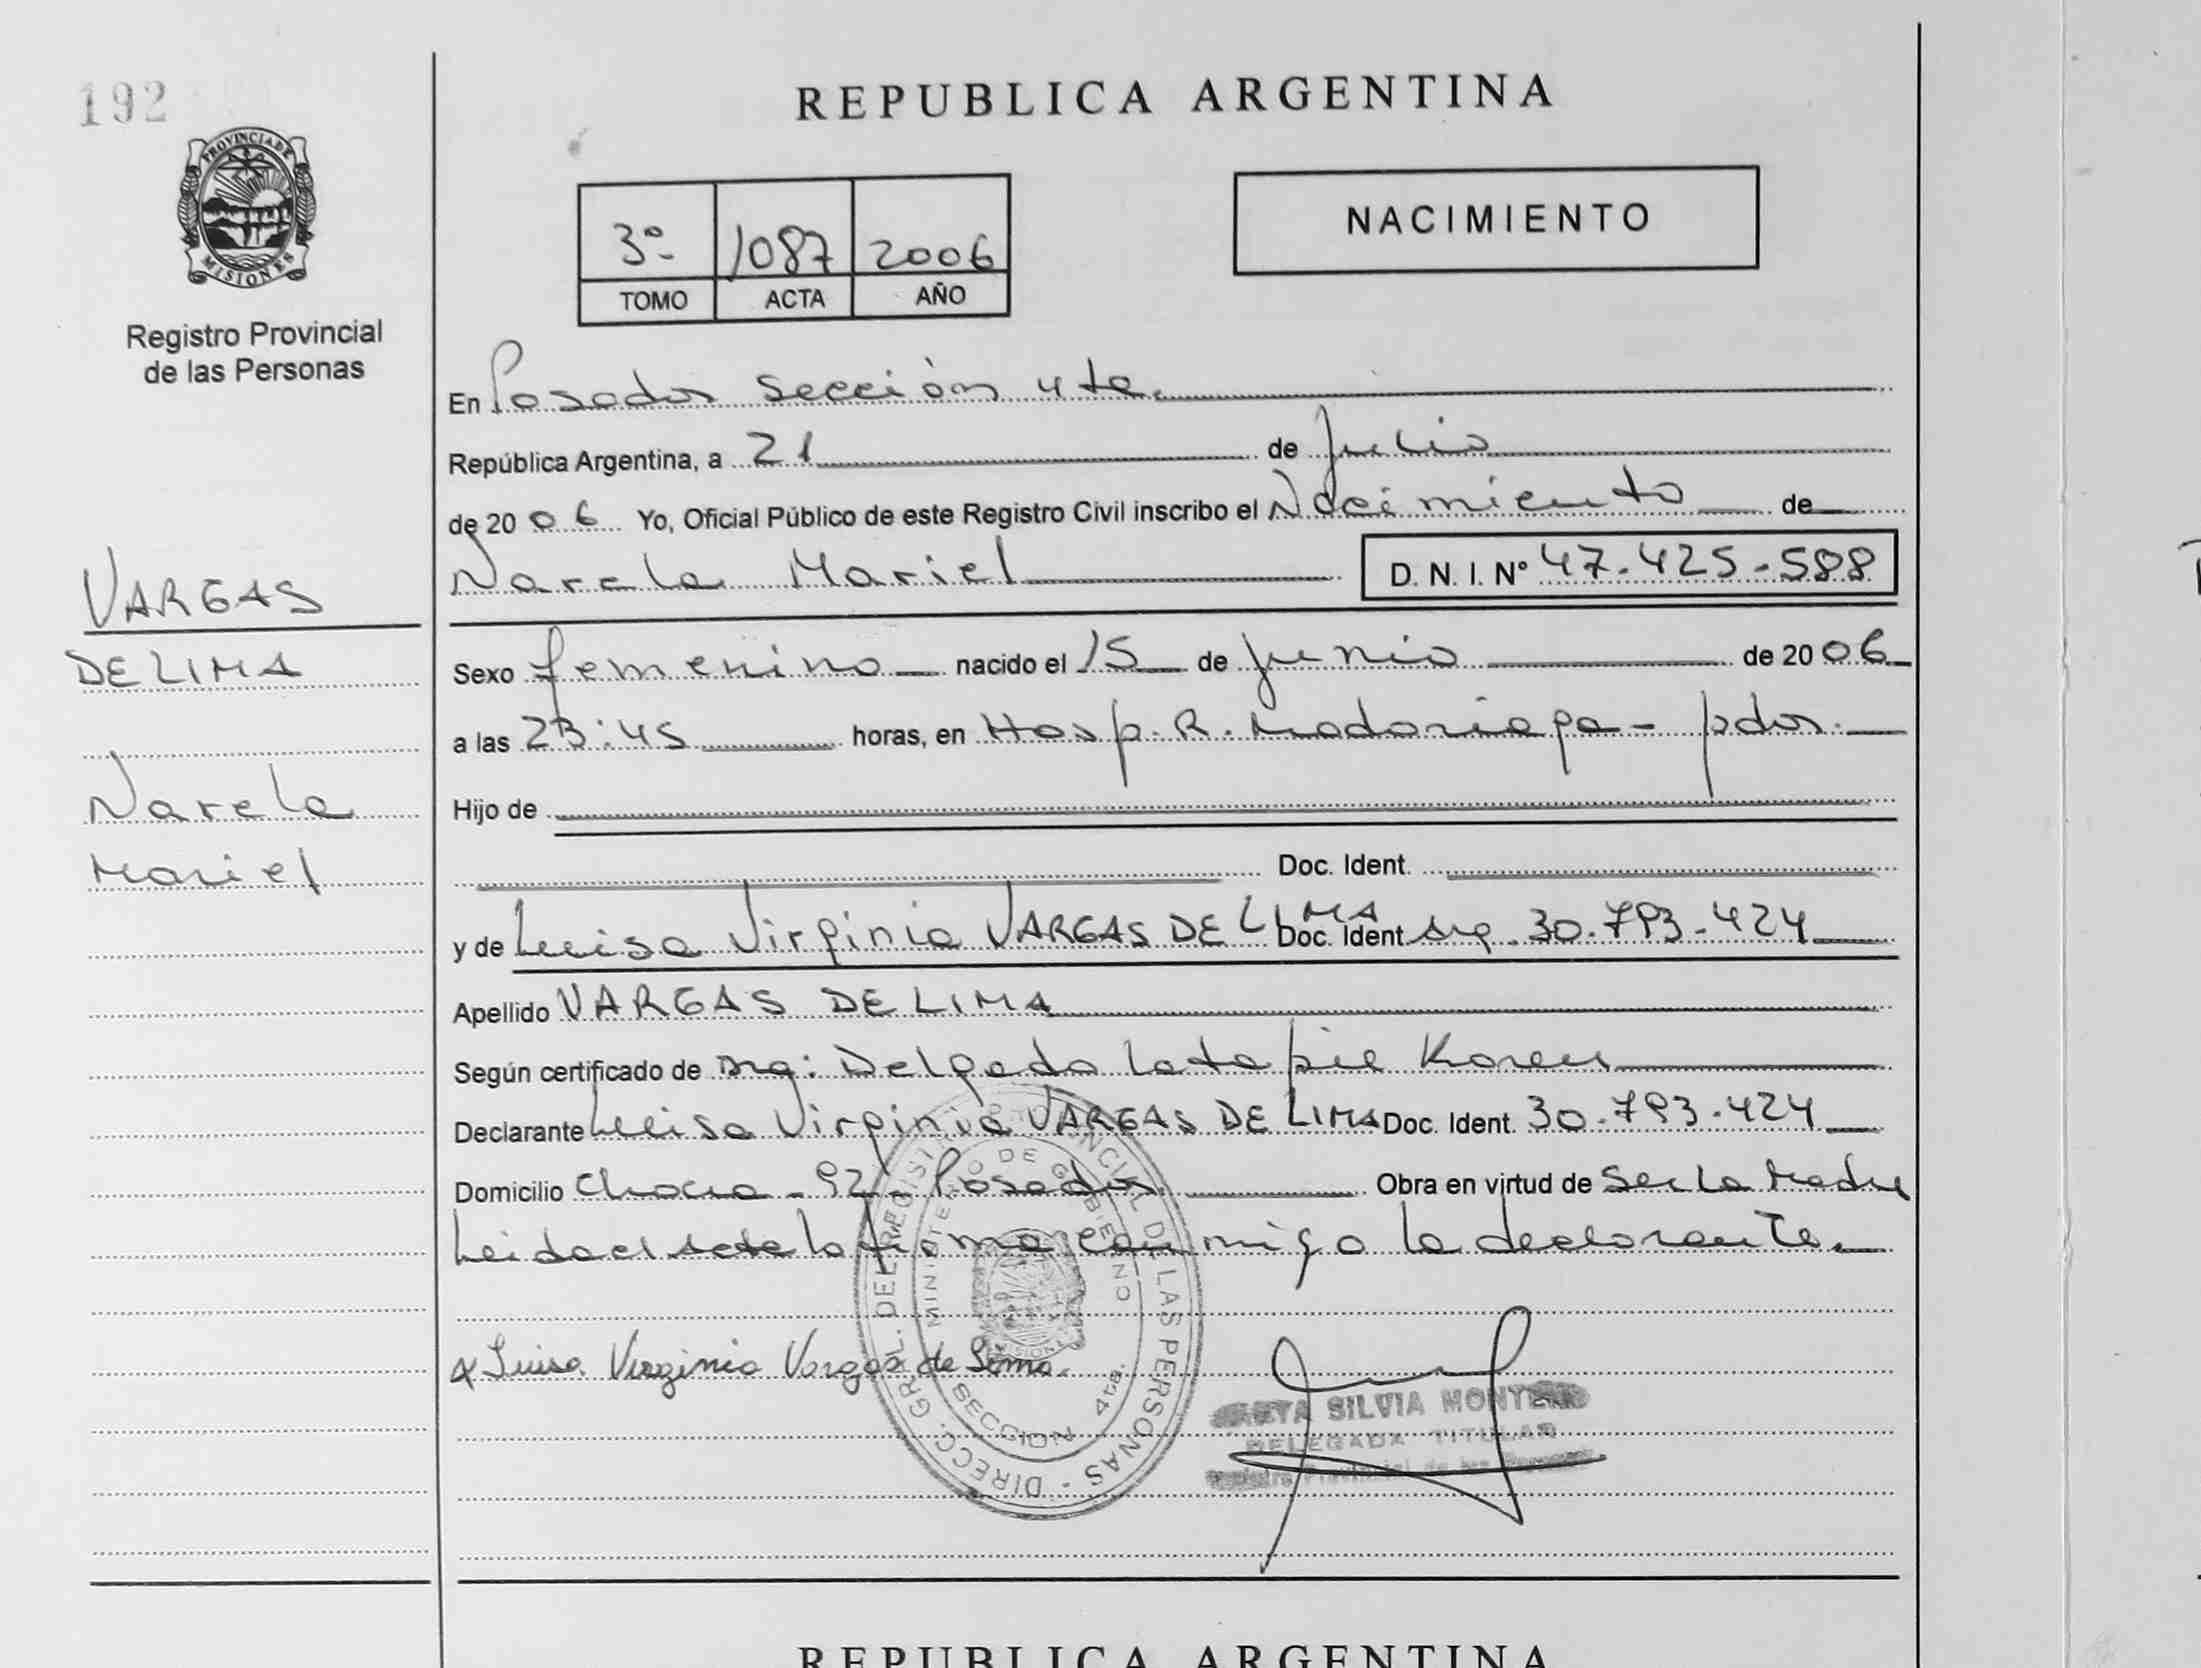 192
REPUBLICA ARGENTINA
PROVINCIA DE
MISIONES
Registro Provincial
de las Personas
3º 1087 2006
TOMO ACTA AÑO
NACIMIENTO
En Posadas sección 4ta.
República Argentina, a 21 de Julio
de 2006 Yo, Oficial Público de este Registro Civil inscribo el Nacimiento de
Narela Mariel D. N. I. Nº 47.425.588
VARGAS
DE LIMA
Narela
Mariel
Sexo femenino nacido el 15 de junio de 2006
a las 23:45 horas, en Hosp. R. Madariaga - pdas.
Hijo de
Doc. Ident.
y de Luisa Virginia VARGAS DE LIMA Doc. Ident Arg. 30.793.424
Apellido VARGAS DE LIMA
Según certificado de Delgado Latapie Karen
Declarante Luisa Virginia VARGAS DE LIMA Doc. Ident. 30.793.424
Domicilio 92 - Posadas Obra en virtud de ser la madre
Leida el acta la firma conmigo la declarante.
x Luisa Virginia Vargas de Lima.
DIRECC. GRAL. DEL REGISTRO PROVINCIAL DE LAS PERSONAS -
MINISTERIO DE GOBIERNO
MISIONES
SECCION 4ta.
SILVIA MONTERO
DELEGADA TITULAR
Registro Provincial de las Personas
REPUBLICA ARGENTINA